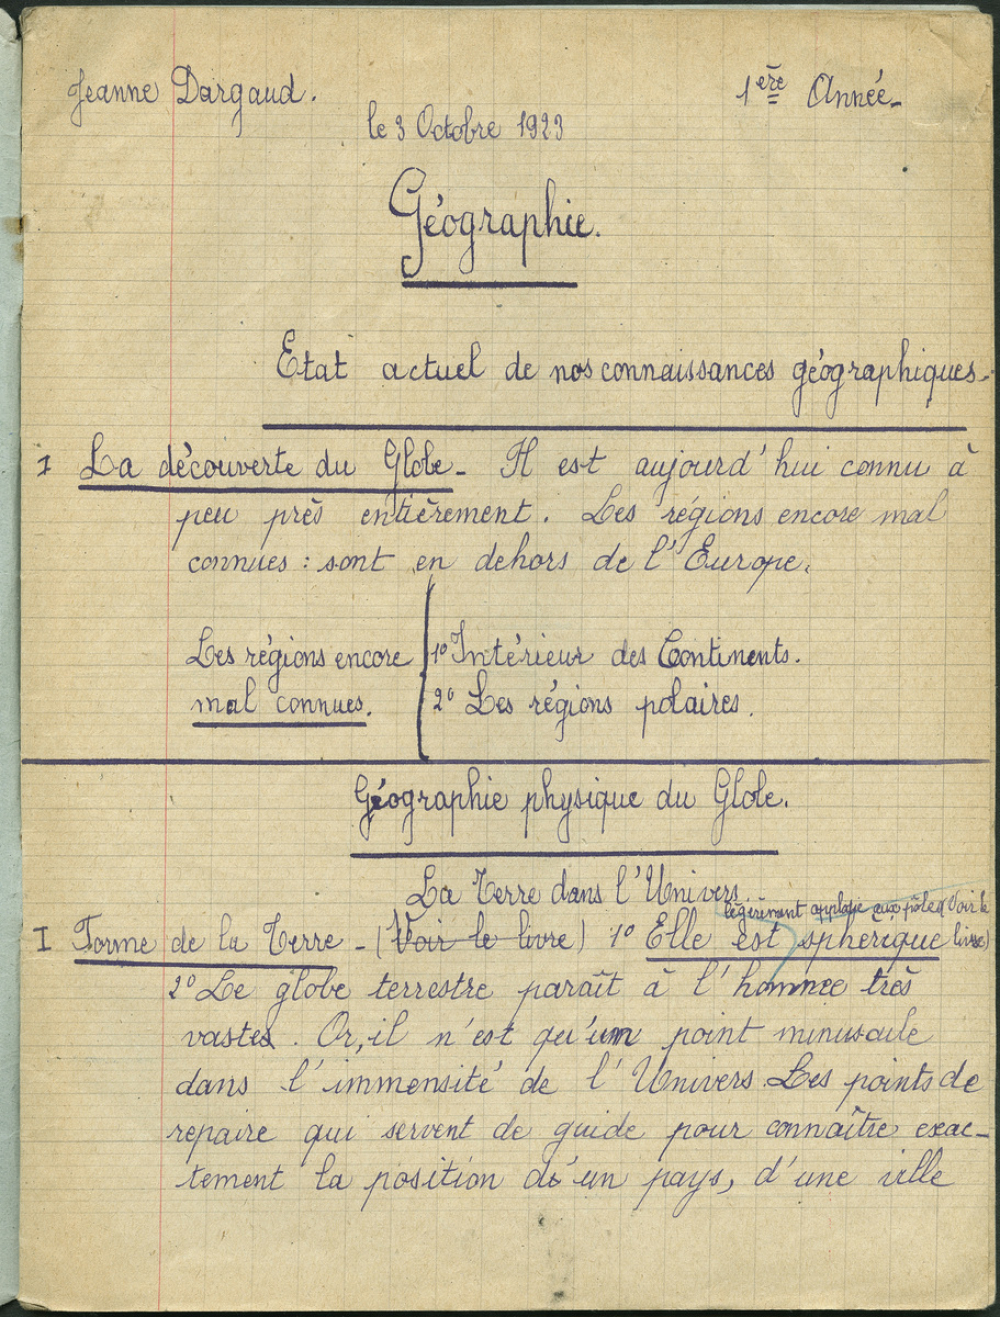 Jeanne Dargaud.
1ère Année
le 3 Octobre 1923
Géographie.
Etat actuel de nos connaissances géographiques.
I La découverte du Globe - Il est aujourd'hui connu à
peu près entièrement. Les régions encore mal
connues : sont en dehors de l'Europe.
Les régions encore
mal connues.
1º Intérieur des Continents.
2º Les régions polaires.
Géographie physique du Globe.
La Terre dans l'Univers.
légèrement applatie aux pôles (Voir le
I Forme de la Terre - (Voir le livre) 1º Elle est spherique livre)
2º Le globe terrestre paraît à l'homme très
vaste. Or, il n'est qu'un point minuscule
dans l'immensité de l'Univers. Les points de
repaire qui servent de guide pour connaître exac-
tement la position d'un pays, d'une ville